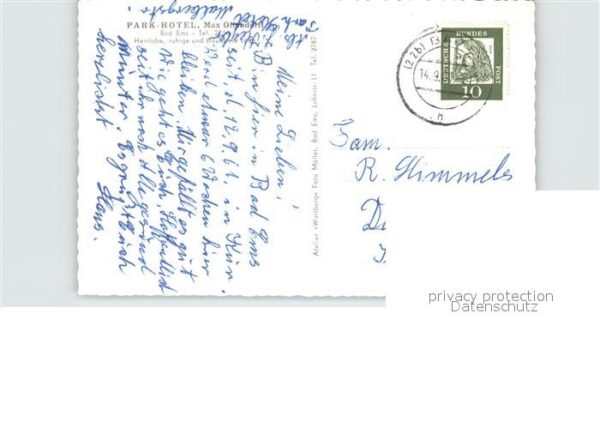 PARK-HOTEL, Max Oh
Bad Ems - Tel.
Herrliche, ruhige und
Park Hotel
Malbergstr.
Meine Lieben!
Bin hier in Bad Ems
seit d. 12.9.61, in Kur.
Werd etwa 6 Wochen hier
bleiben. Mir gefällt es gut
Wie geht es Euch, Hoffentlich
seid noch Alle gesund
und munter. Es grüßt Euch
herzlichst Hans.
Atelier »Wartburg« Foto Müller, Bad Ems, Lahnstr. 11 Tel. 2767
(22b)
14.9.
DEUTSCHE
BUNDES
POST
10
Fam.
R. Himmels
privacy protection
Datenschutz